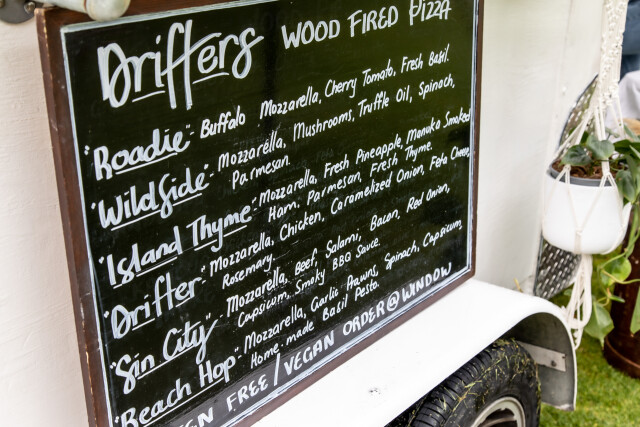 Drifters WOOD FIRED PIZZA
"Roadie"- Buffalo Mozzarella, Cherry Tomato, Fresh Basil.
"WildSide"- Mozzarella, Mushrooms, Truffle Oil, Spinach,
Parmesan.
"Island Thyme"- Mozzarella, Fresh Pineapple, Manuka Smoked
Ham, Parmesan, Fresh Thyme.
"Drifter"- Mozzarella, Chicken, Caramelized Onion, Feta Cheese,
Rosemary.
"Sin City"- Mozzarella, Beef, Salami, Bacon, Red Onion,
Capsicum, Smoky BBQ Sauce.
"Beach Hop"- Mozzarella, Garlic Prawns, Spinach, Capsicum,
Home-made Basil Pesto.
FREE / VEGAN ORDER @ WINDOW